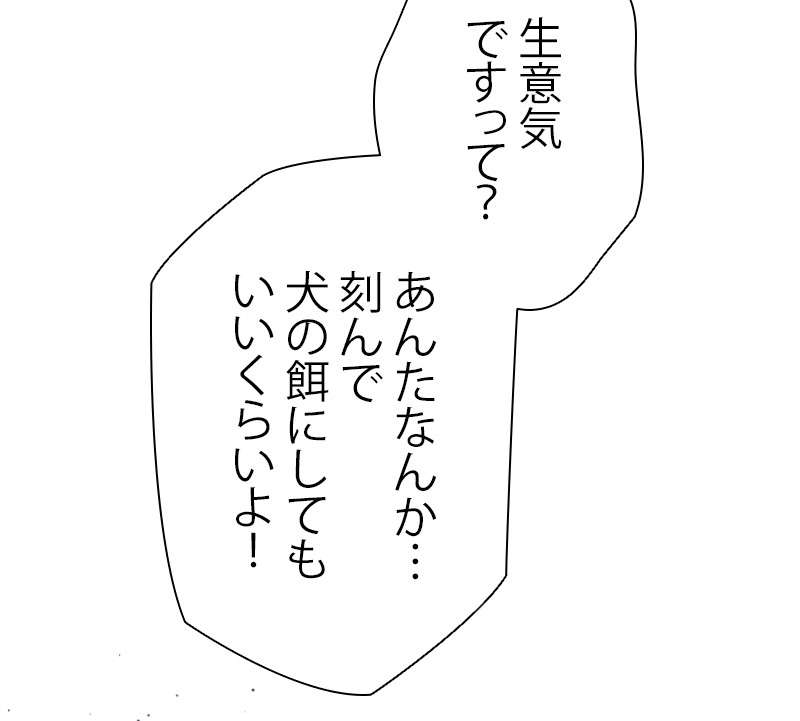 生意気
ですって？
あんたなんか…
刻んで
犬の餌にしても
いいくらいよ！